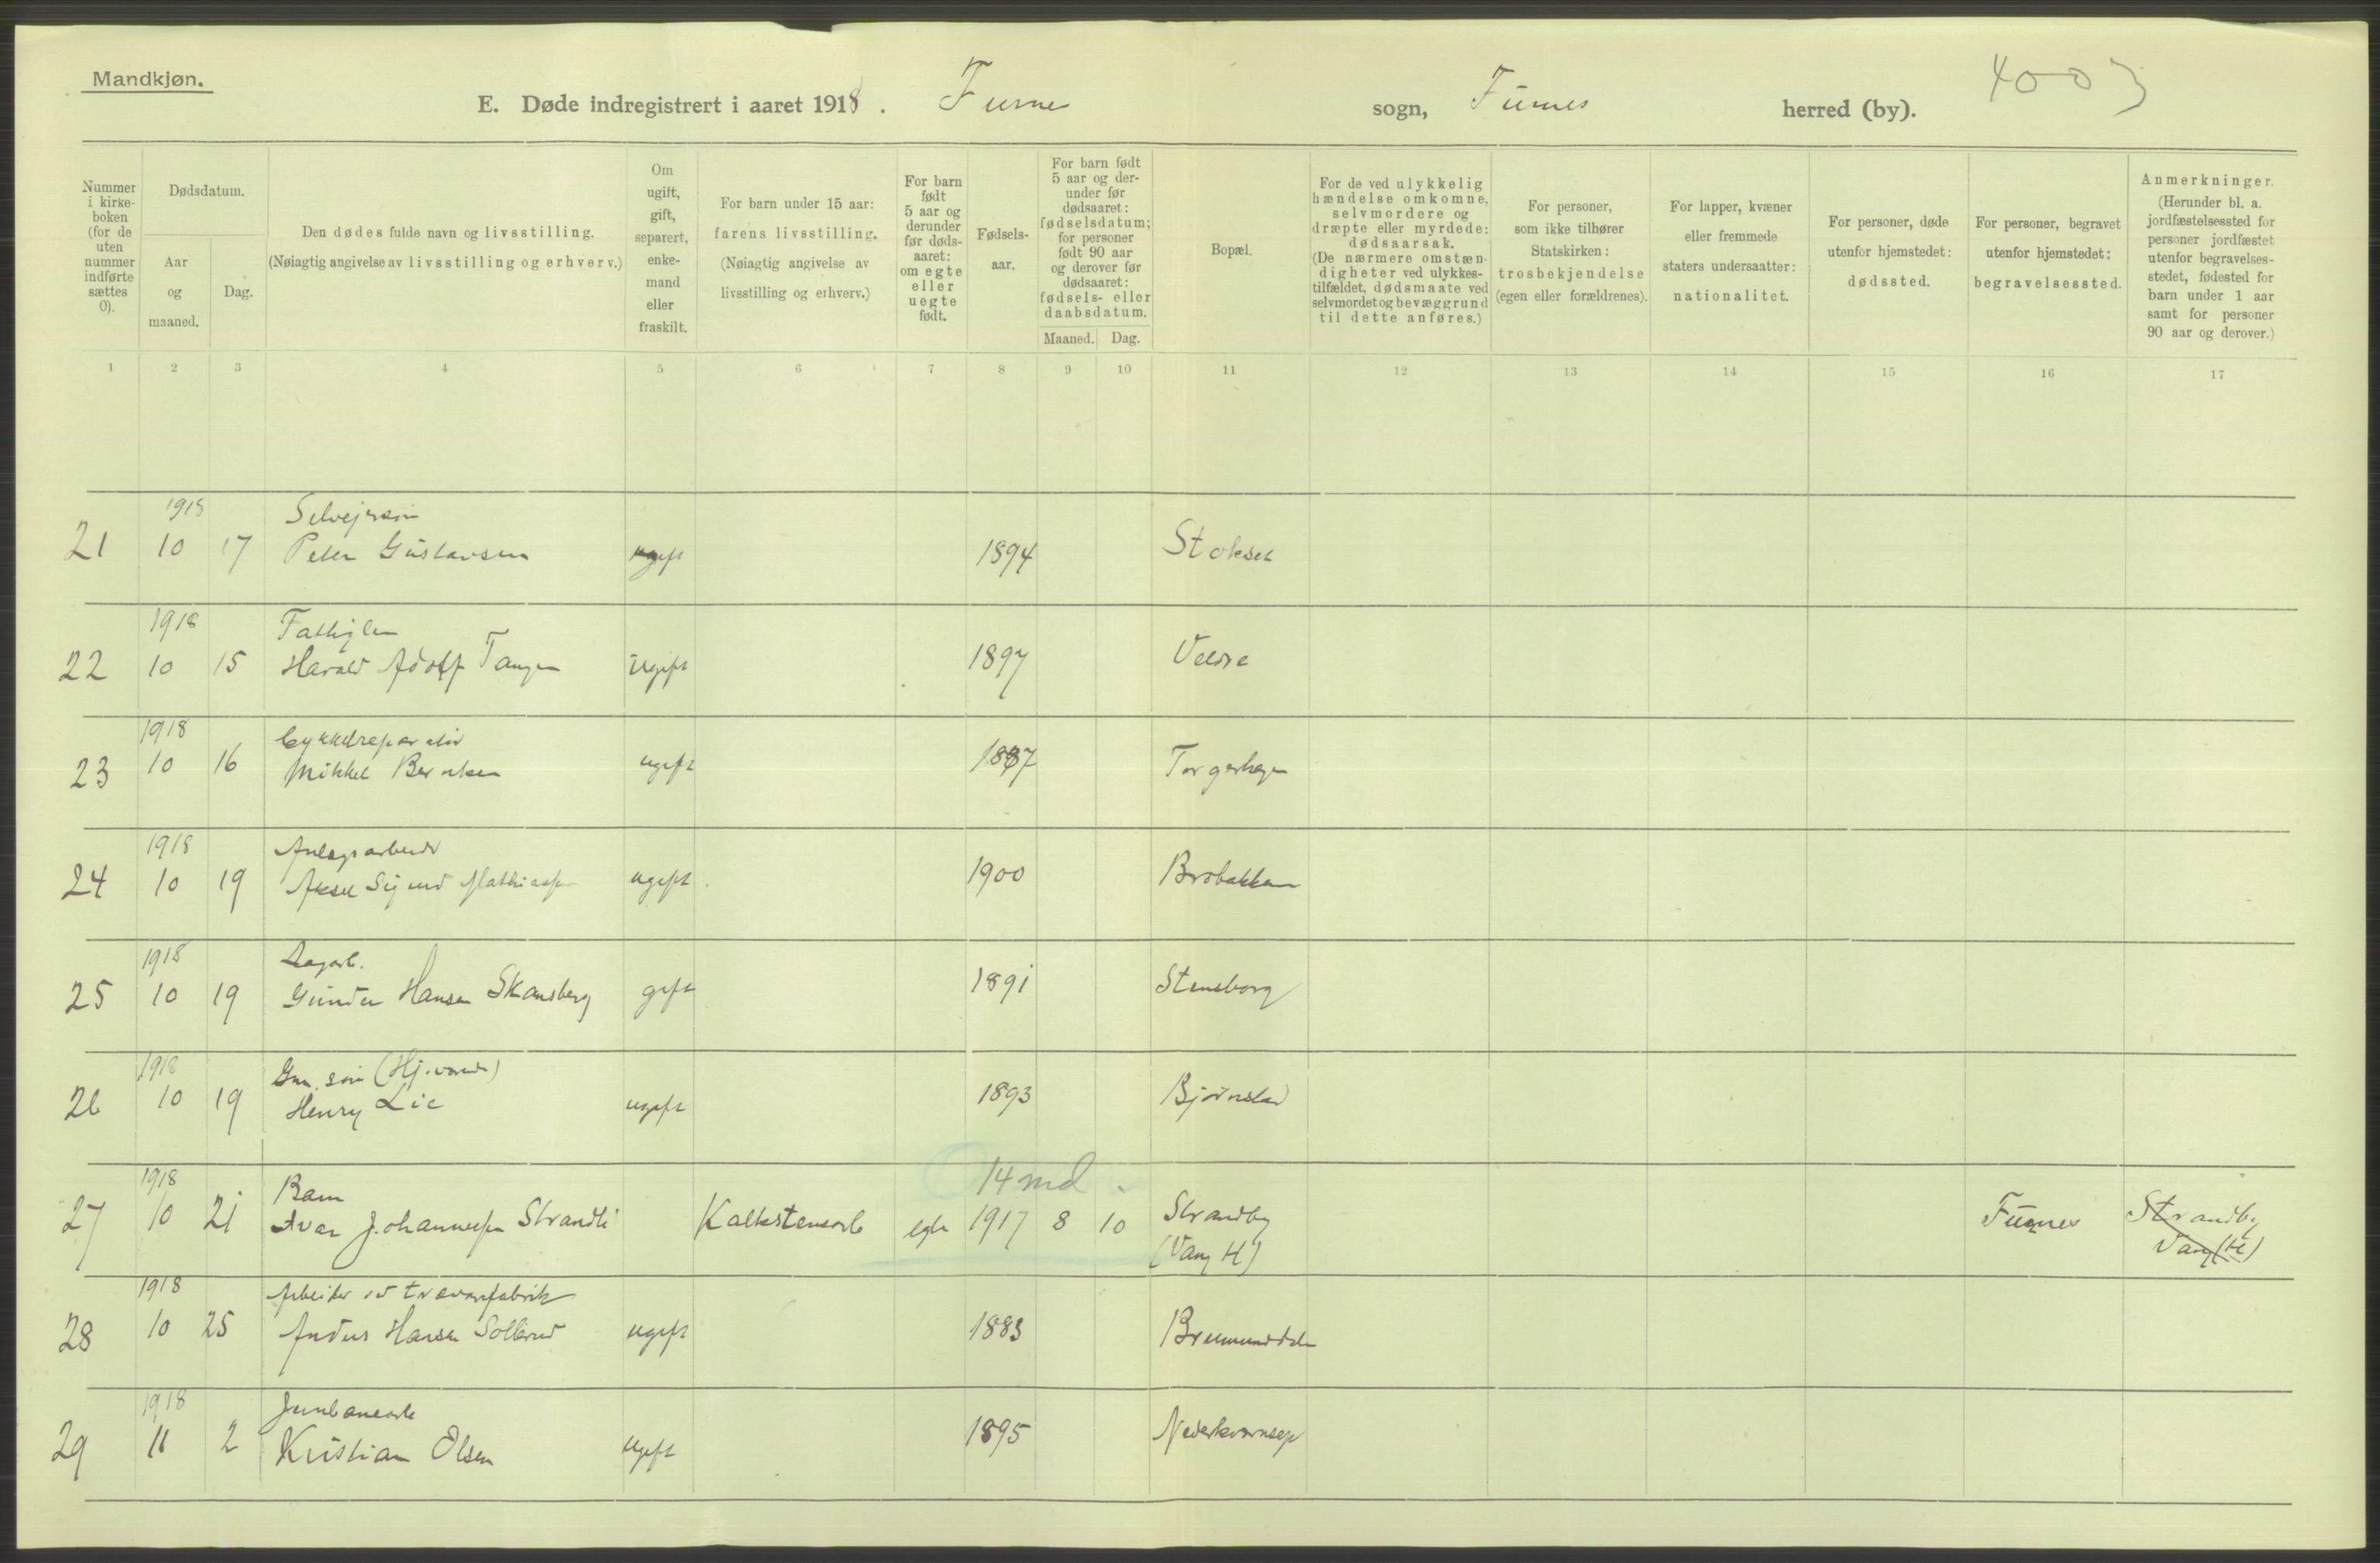 Mandkjøn.
E. Døde indregistrert i aaret 1918. Furnes sogn, Furnes herred (by). 4003
Nummer i kirkeboken (for de uten nummer indførte sættes 0).
Dødsdatum.
Aar og maaned.
Dag.
Den dødes fulde navn og livsstilling.
(Nøiagtig angivelse av livsstilling og erhverv.)
Om ugift, gift, separert, enkemand eller fraskilt.
For barn under 15 aar:
farens livsstilling.
(Nøiagtig angivelse av livsstilling og erhverv.)
For barn født 5 aar og derunder før dødsaaret: om egte eller uegte født.
Fødselsaar.
For barn født 5 aar og derunder før dødsaaret: fødselsdatum; for personer født 90 aar og derover før dødsaaret: fødsels- eller daabsdatum.
Maaned. Dag.
Bopæl.
For de ved ulykkelig hændelse omkomne, selvmordere og dræpte eller myrdede: dødsaarsak.
(De nærmere omstændigheter ved ulykkestilfældet, dødsmaate ved selvmordet og bevæggrund til dette anføres.)
For personer, som ikke tilhører Statskirken: trosbekjendelse (egen eller forældrenes).
For lapper, kvæner eller fremmede staters undersaatter: nationalitet.
For personer, døde utenfor hjemstedet: dødssted.
For personer, begravet utenfor hjemstedet: begravelsessted.
Anmerkninger.
(Herunder bl. a. jordfæstelsessted for personer jordfæstet utenfor begravelsesstedet, fødested for barn under 1 aar samt for personer 90 aar og derover.)
1 2 3 4 5 6 7 8 9 10 11 12 13 14 15 16 17
1918 Selvejersøn
21 10 17 Peter Gustavsen ugift 1894 Stokset
1918
22 10 15 Harald Adolf Tangen Ugift 1897 Veldre
1918 Cykkelreparatør
23 10 16 Mikkel Berntsen ugift 1887 Torgerhagen
1918 Anlægsarbeider
24 10 19 Aksel Sigurd Mathiass ugift 1900 Brobakken
1918 Dagarb.
25 10 19 Gunder Hansen Skansberg gift 1891 Stensborg
1918 Gm. søn
26 10 19 Henry Lie ugift 1893 Bjørnstad
1918 Barn 14 md
27 10 21 Ivar Johannessen Strandli Kalkstensarb egte 1917 8 10 Strandby Furnes Strandby
(Vang H) Vang (H)
1918 Arbeider ved trævarefabrik
28 10 25 Anders Hansen Sollerud ugift 1883 Brumunddalen
1918 Jernbanearb
29 11 2 Kristian Olsen ugift 1895 Nederkvernsep